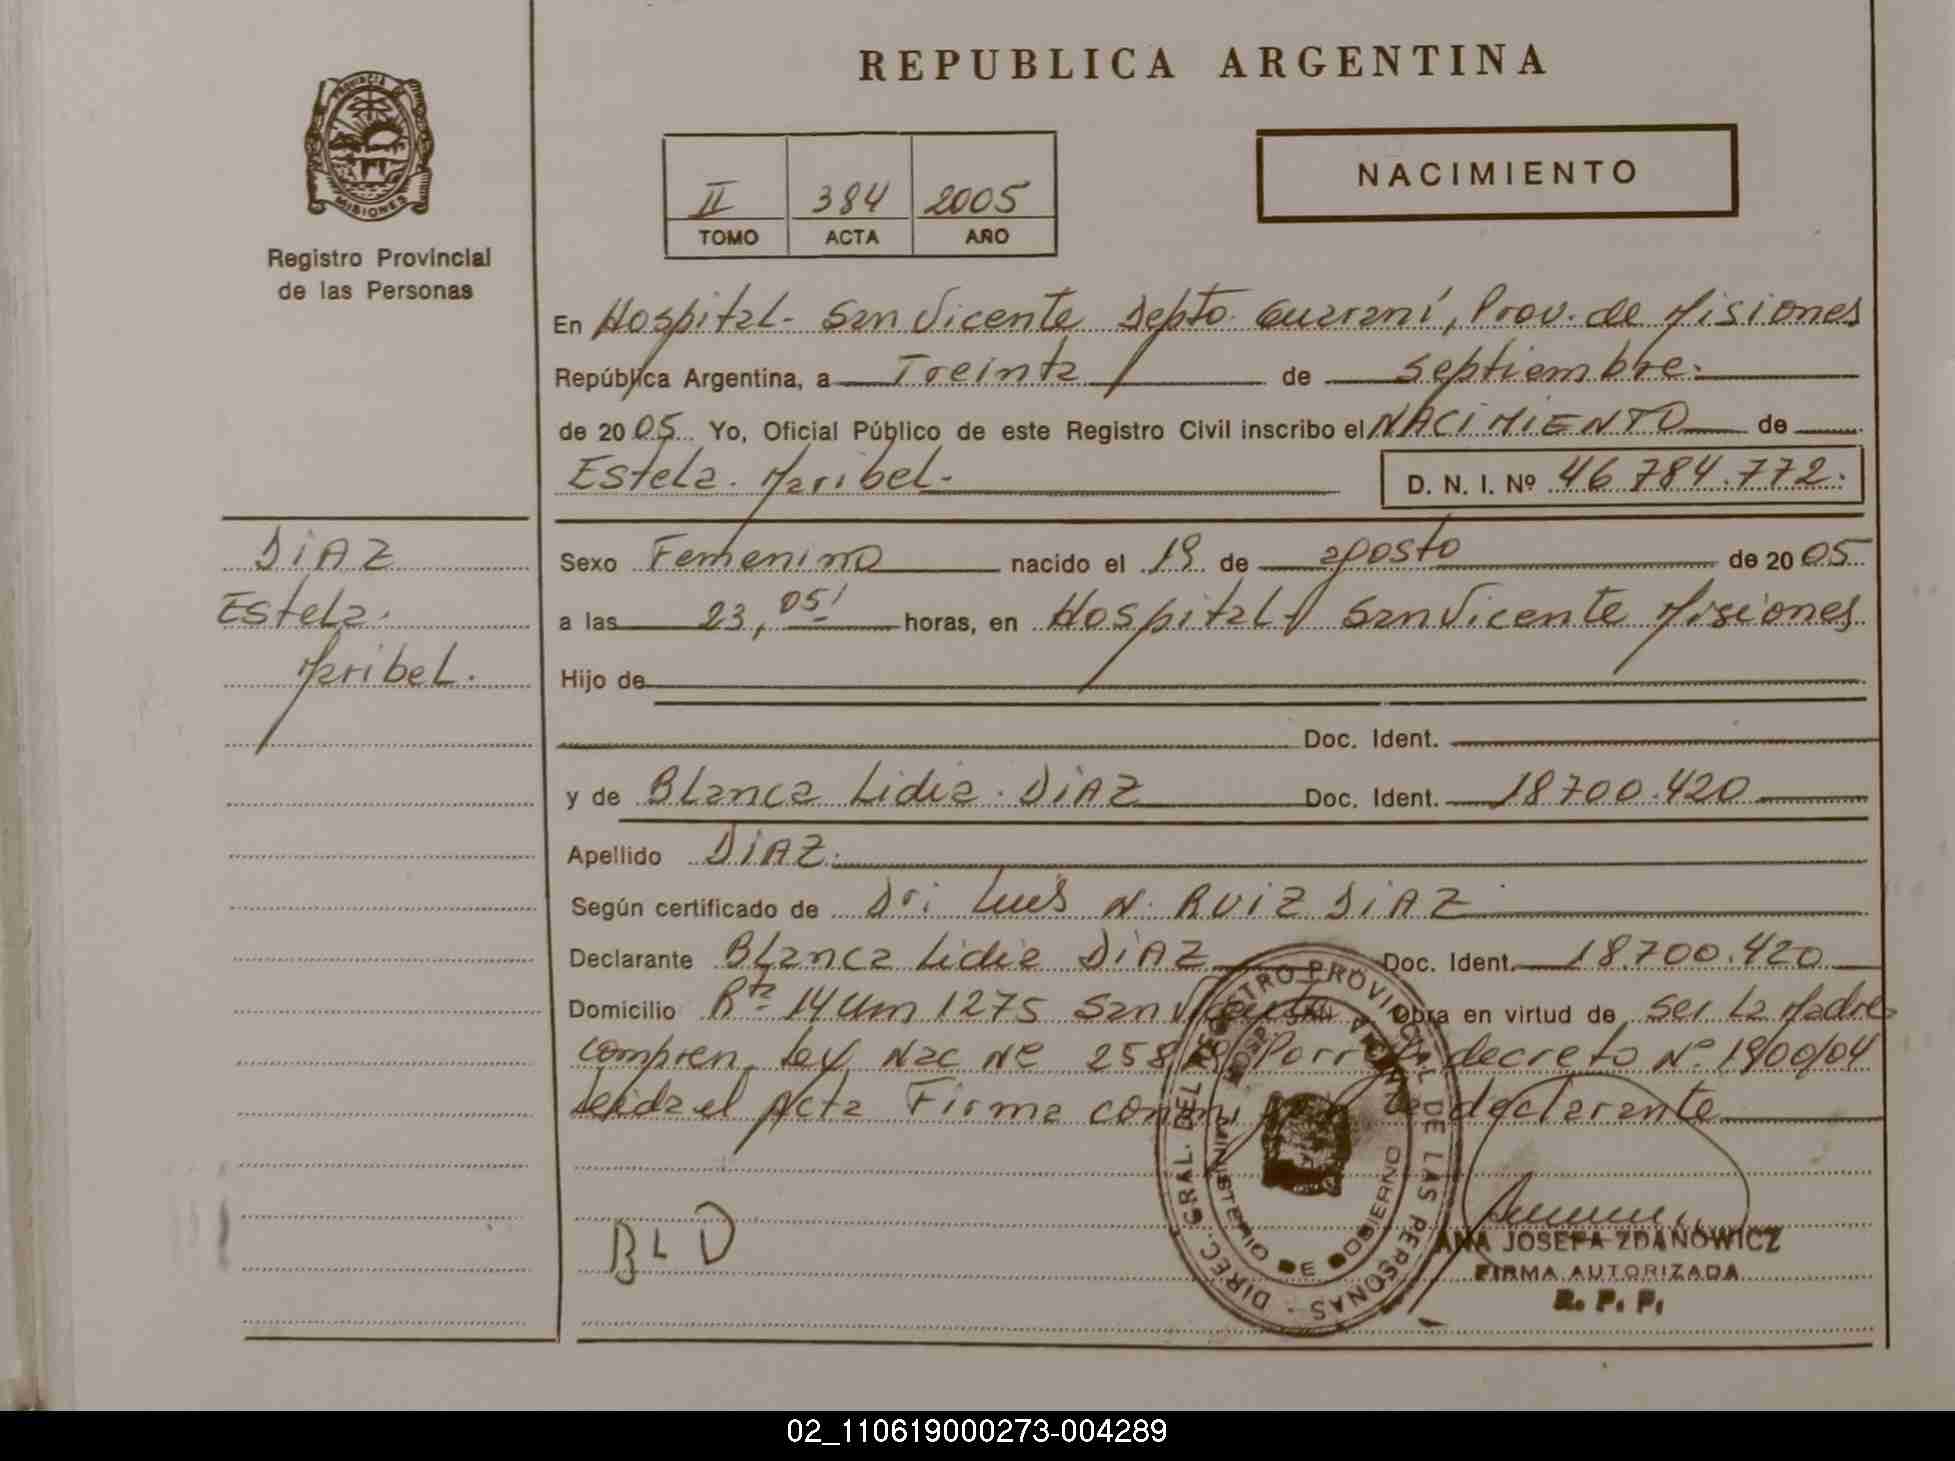 REPUBLICA ARGENTINA
PROVINCIA DE MISIONES
Registro Provincial
de las Personas
NACIMIENTO
II 384 2005
TOMO ACTA AÑO
En Hospital - San Vicente Depto. Guaraní, Prov. de Misiones
República Argentina, a Treinta de septiembre.
de 2005 Yo, Oficial Público de este Registro Civil inscribo el NACIMIENTO de
Estela Maribel. D. N. I. Nº 46.784.772.
DIAZ
Estela
Maribel.
Sexo Femenino nacido el 19 de agosto de 2005
a las 23, 05' horas, en Hospital San Vicente Misiones
Hijo de
Doc. Ident.
y de Blanca Lidia DIAZ Doc. Ident. 18700.420
Apellido DIAZ.
Según certificado de Dr: Luis N. RUIZ DIAZ
Declarante Blanca Lidia DIAZ Doc. Ident. 18.700.420
Domicilio Rta 14 Km 1275 San Vicente Obra en virtud de ser la Madre
compren. Ley Nac Nº 258 Porr decreto Nº 1900/04
Leída el Acta Firma conmigo la declarante
BLD
DIREC. GRAL. DEL REGISTRO PROVINCIAL DE LAS PERSONAS
HOSP. SAN VICENTE
MINISTERIO DE GOBIERNO
ANA JOSEFA ZDANOWICZ
FIRMA AUTORIZADA
R. P. P.
02_110619000273-004289